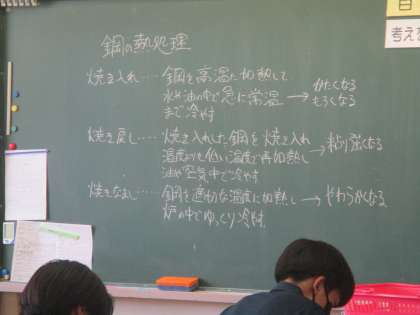 鋼の熱処理
焼き入れ……鋼を高温に加熱して
水や油の中で急に常温
まで冷やす
→かたくなる
もろくなる
焼き戻し……焼き入れした鋼を焼き入れ
温度よりも低い温度で再加熱し
油や空気中で冷やす
→粘り強くなる
焼きなまし……鋼を適切な温度に加熱し
炉の中でゆっくり冷やす。
→やわらかくなる
考え